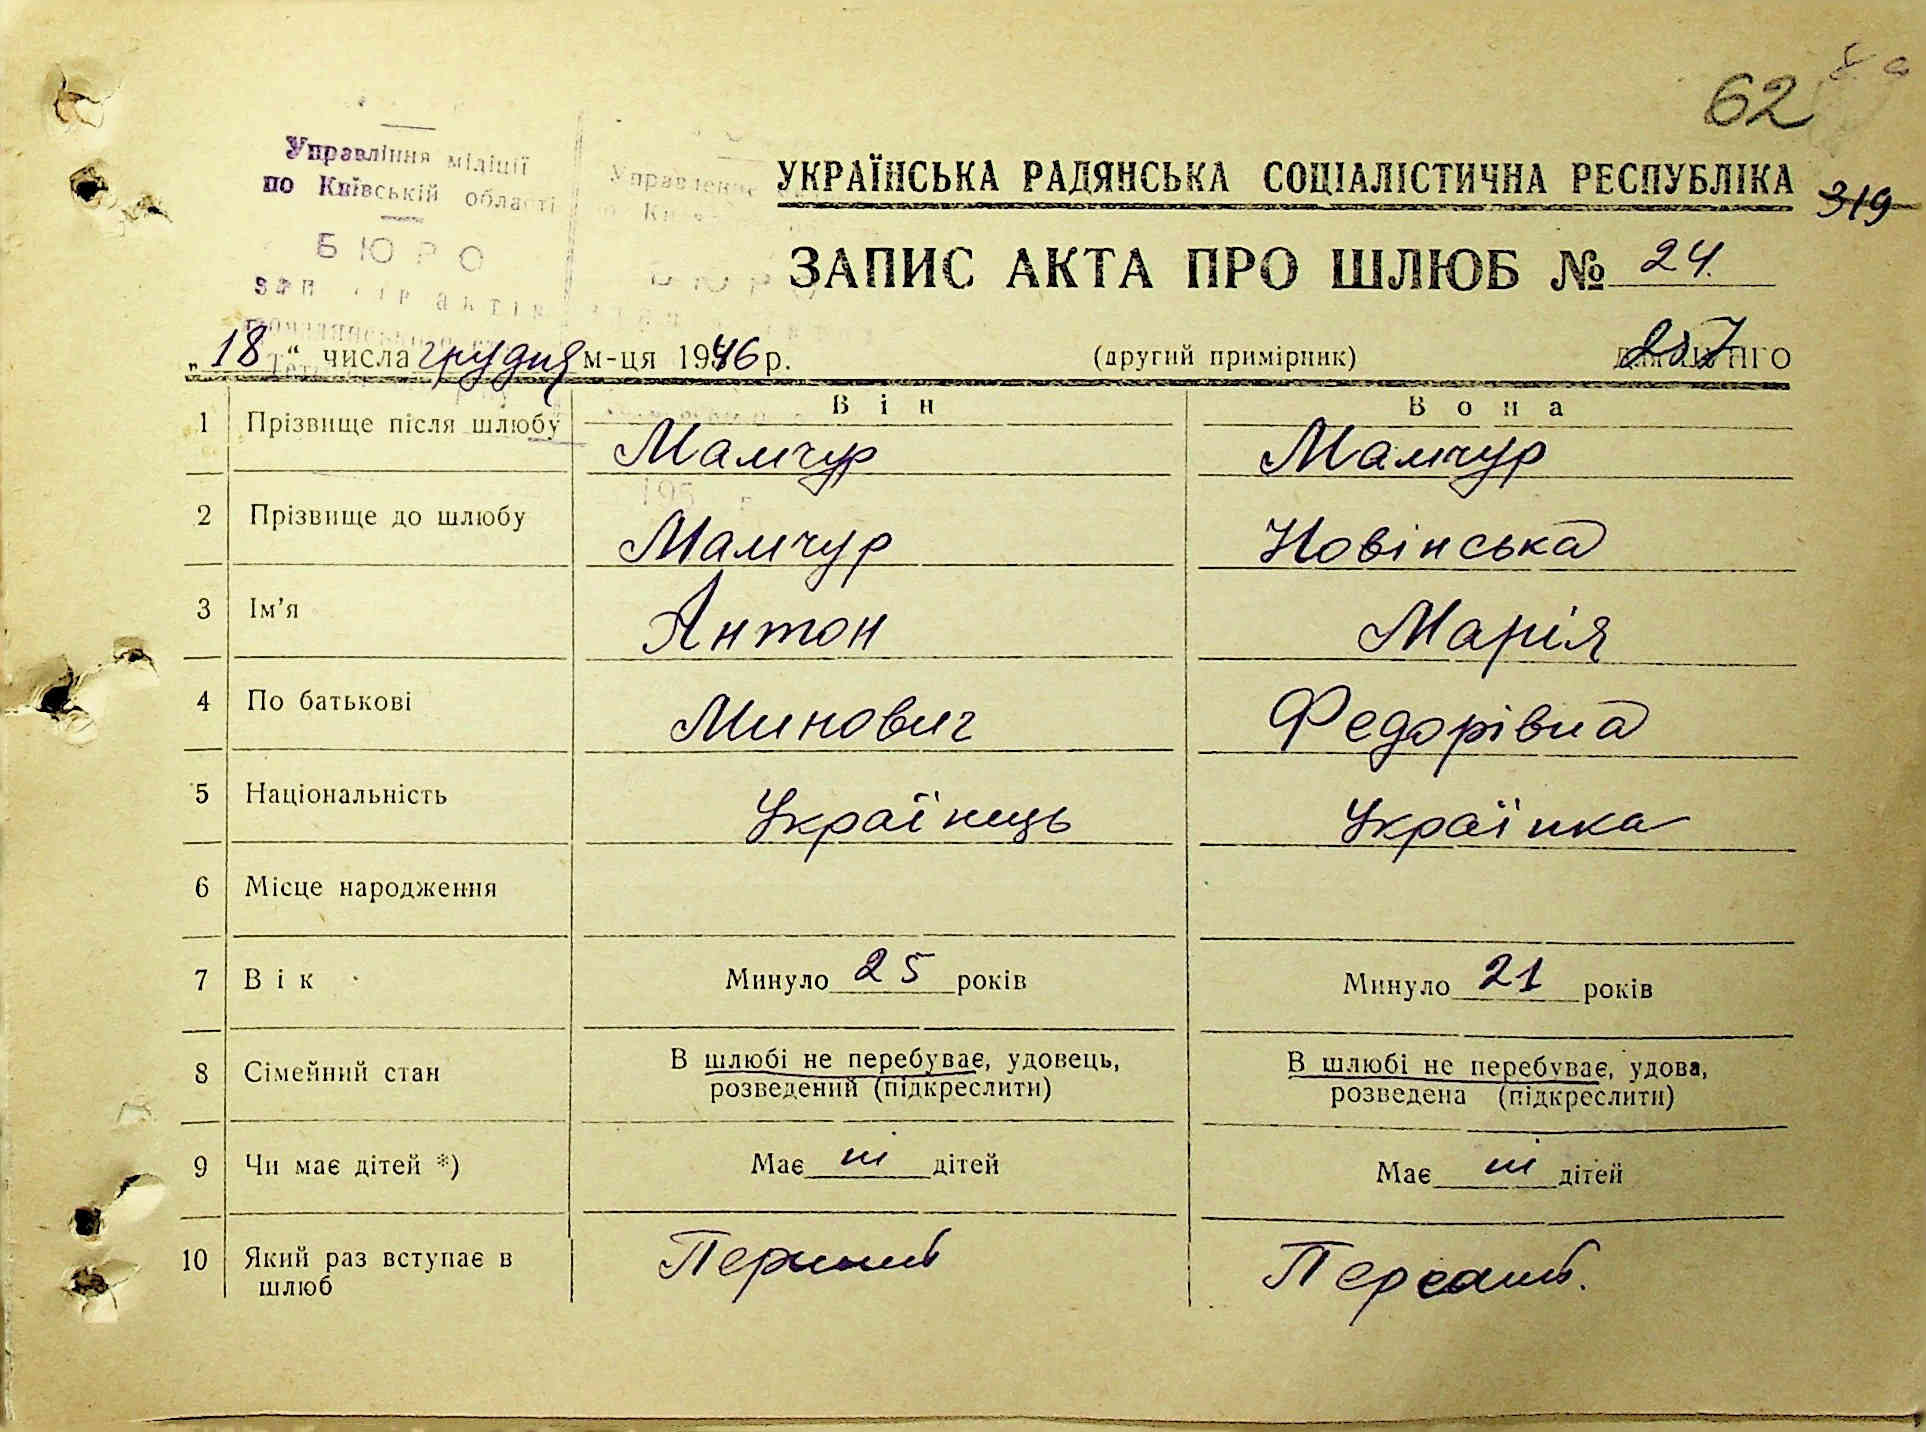 62
Управління міліції
по Київській області
БЮРО
УКРАЇНСЬКА РАДЯНСЬКА СОЦІАЛІСТИЧНА РЕСПУБЛІКА
319
ЗАПИС АКТА ПРО ШЛЮБ № 24.
„18“ числа грудня м-ця 1946 р. (другий примірник) 257
Він Вона
1 Прізвище після шлюбу Мамчур Мамчур
2 Прізвище до шлюбу Мамчур Новінська
3 Ім’я Антон Марія
4 По батькові Минович Федорівна
5 Національність Українць Українка
6 Місце народження
7 Вік Минуло 25 років Минуло 21 років
8 Сімейний стан В шлюбі не перебуває, удовець, В шлюбі не перебуває, удова,
розведений (підкреслити) розведена (підкреслити)
9 Чи має дітей *) Має ні дітей Має ні дітей
10 Який раз вступає в
шлюб